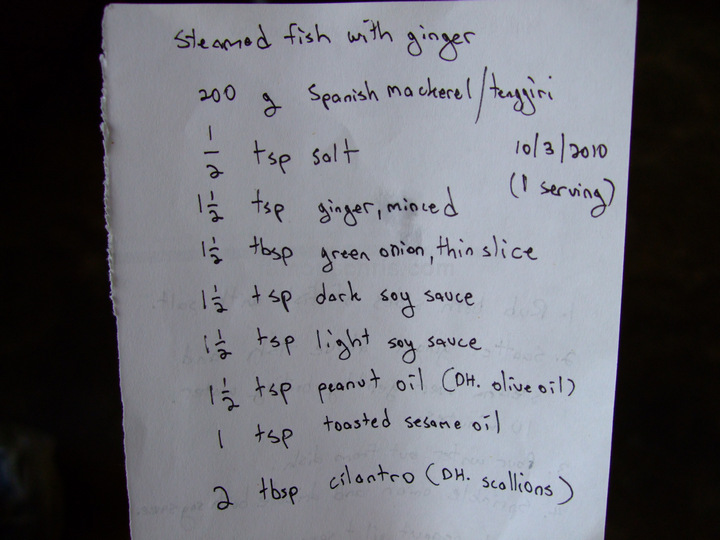 Steamed fish with ginger
200 g Spanish mackerel/tenggiri
1/2 tsp salt
10/3/2010
(1 serving)
1 1/2 tsp ginger, minced
1 1/2 tbsp green onion, thin slice
1 1/2 tsp dark soy sauce
1 1/2 tsp light soy sauce
1 1/2 tsp peanut oil (DH. olive oil)
1 tsp toasted sesame oil
2 tbsp cilantro (DH. scallions)